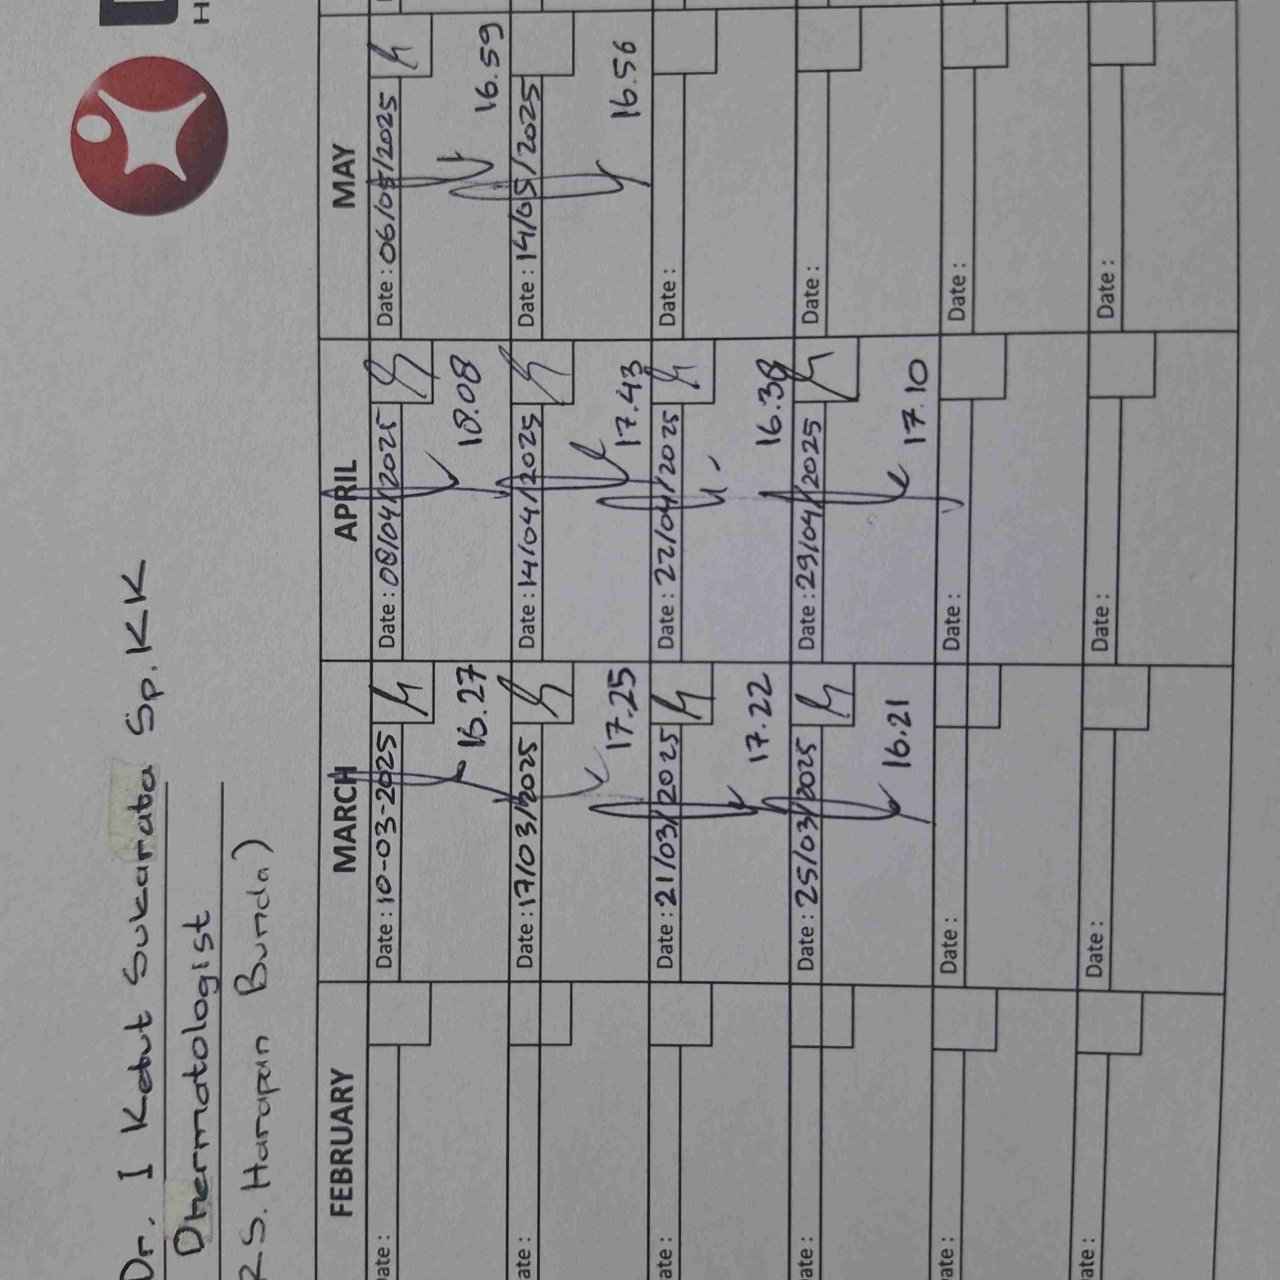 Dr. I Ketut Sukarata Sp.KK
Dhermatologist
RS. Harapan Bunda)
H
FEBRUARY MARCH APRIL MAY
Date : Date : 10-03-2025 Date : 08/04/2025 Date : 06/05/2025
16.27 18.08 16.59
Date : Date : 17/03/2025 Date : 14/04/2025 Date : 14/05/2025
17.25 17.43 16.56
Date : 21/03/2025 Date : 22/04/2025 Date :
17.22 16.38
Date : 25/03/2025 Date : 29/04/2025 Date :
16.21 17.10
Date : Date : Date : Date :
Date : Date : Date : Date :